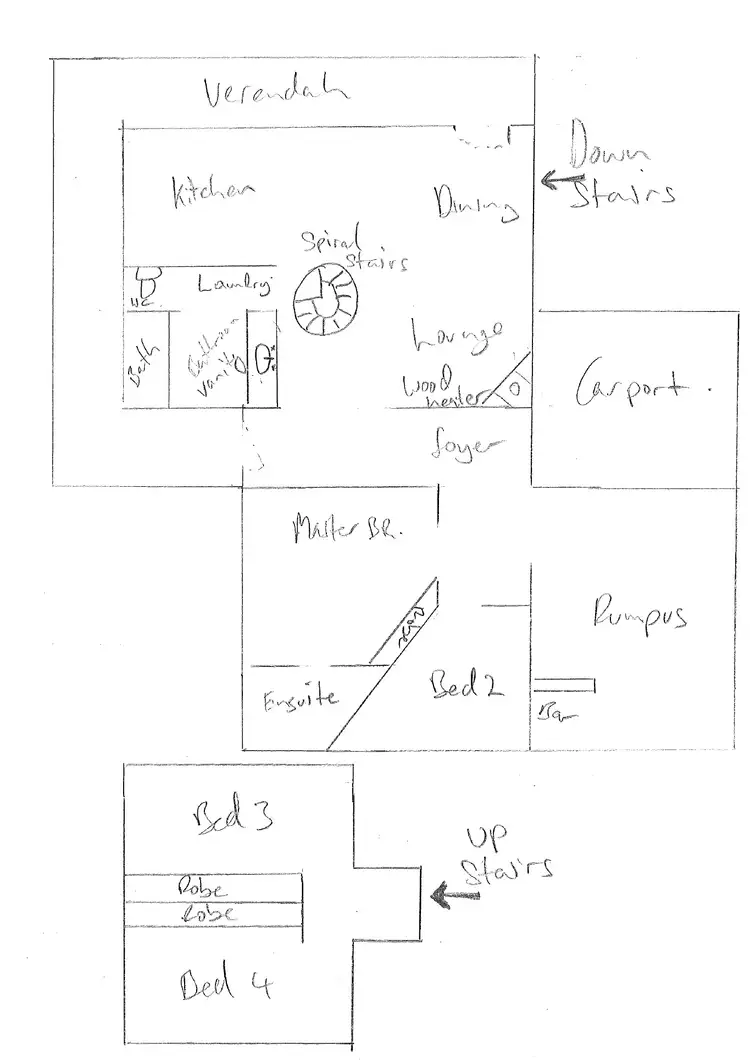 Verendah
Down
Stairs
Kitchen
Dining
Spiral
Stairs
WC
Laundry
Lounge
Bath
Bathroom
vanity
Wood
heater
Carport.
foyer
Master BR.
Robe
Rumpus
Ensuite
Bed 2
Bar
Bed 3
UP
Stairs
Robe
Robe
Bed 4